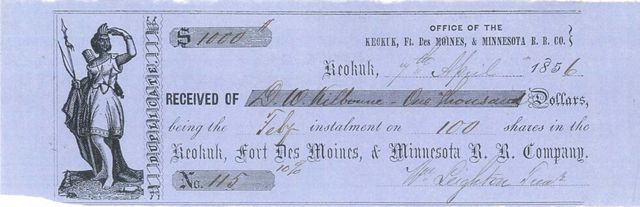 $ 1000
OFFICE OF THE
KEOKUK, Ft. DES MOINES, & MINNESOTA R. R. CO.
Keokuk, 7th April 1856
RECEIVED OF D. W. Kilbourne - One Thousand Dollars,
being the Feby instalment on 100 shares in the
Keokuk, Fort Des Moines, & Minnesota R. R. Company.
No. 115 10% Wm Leighton Treasr